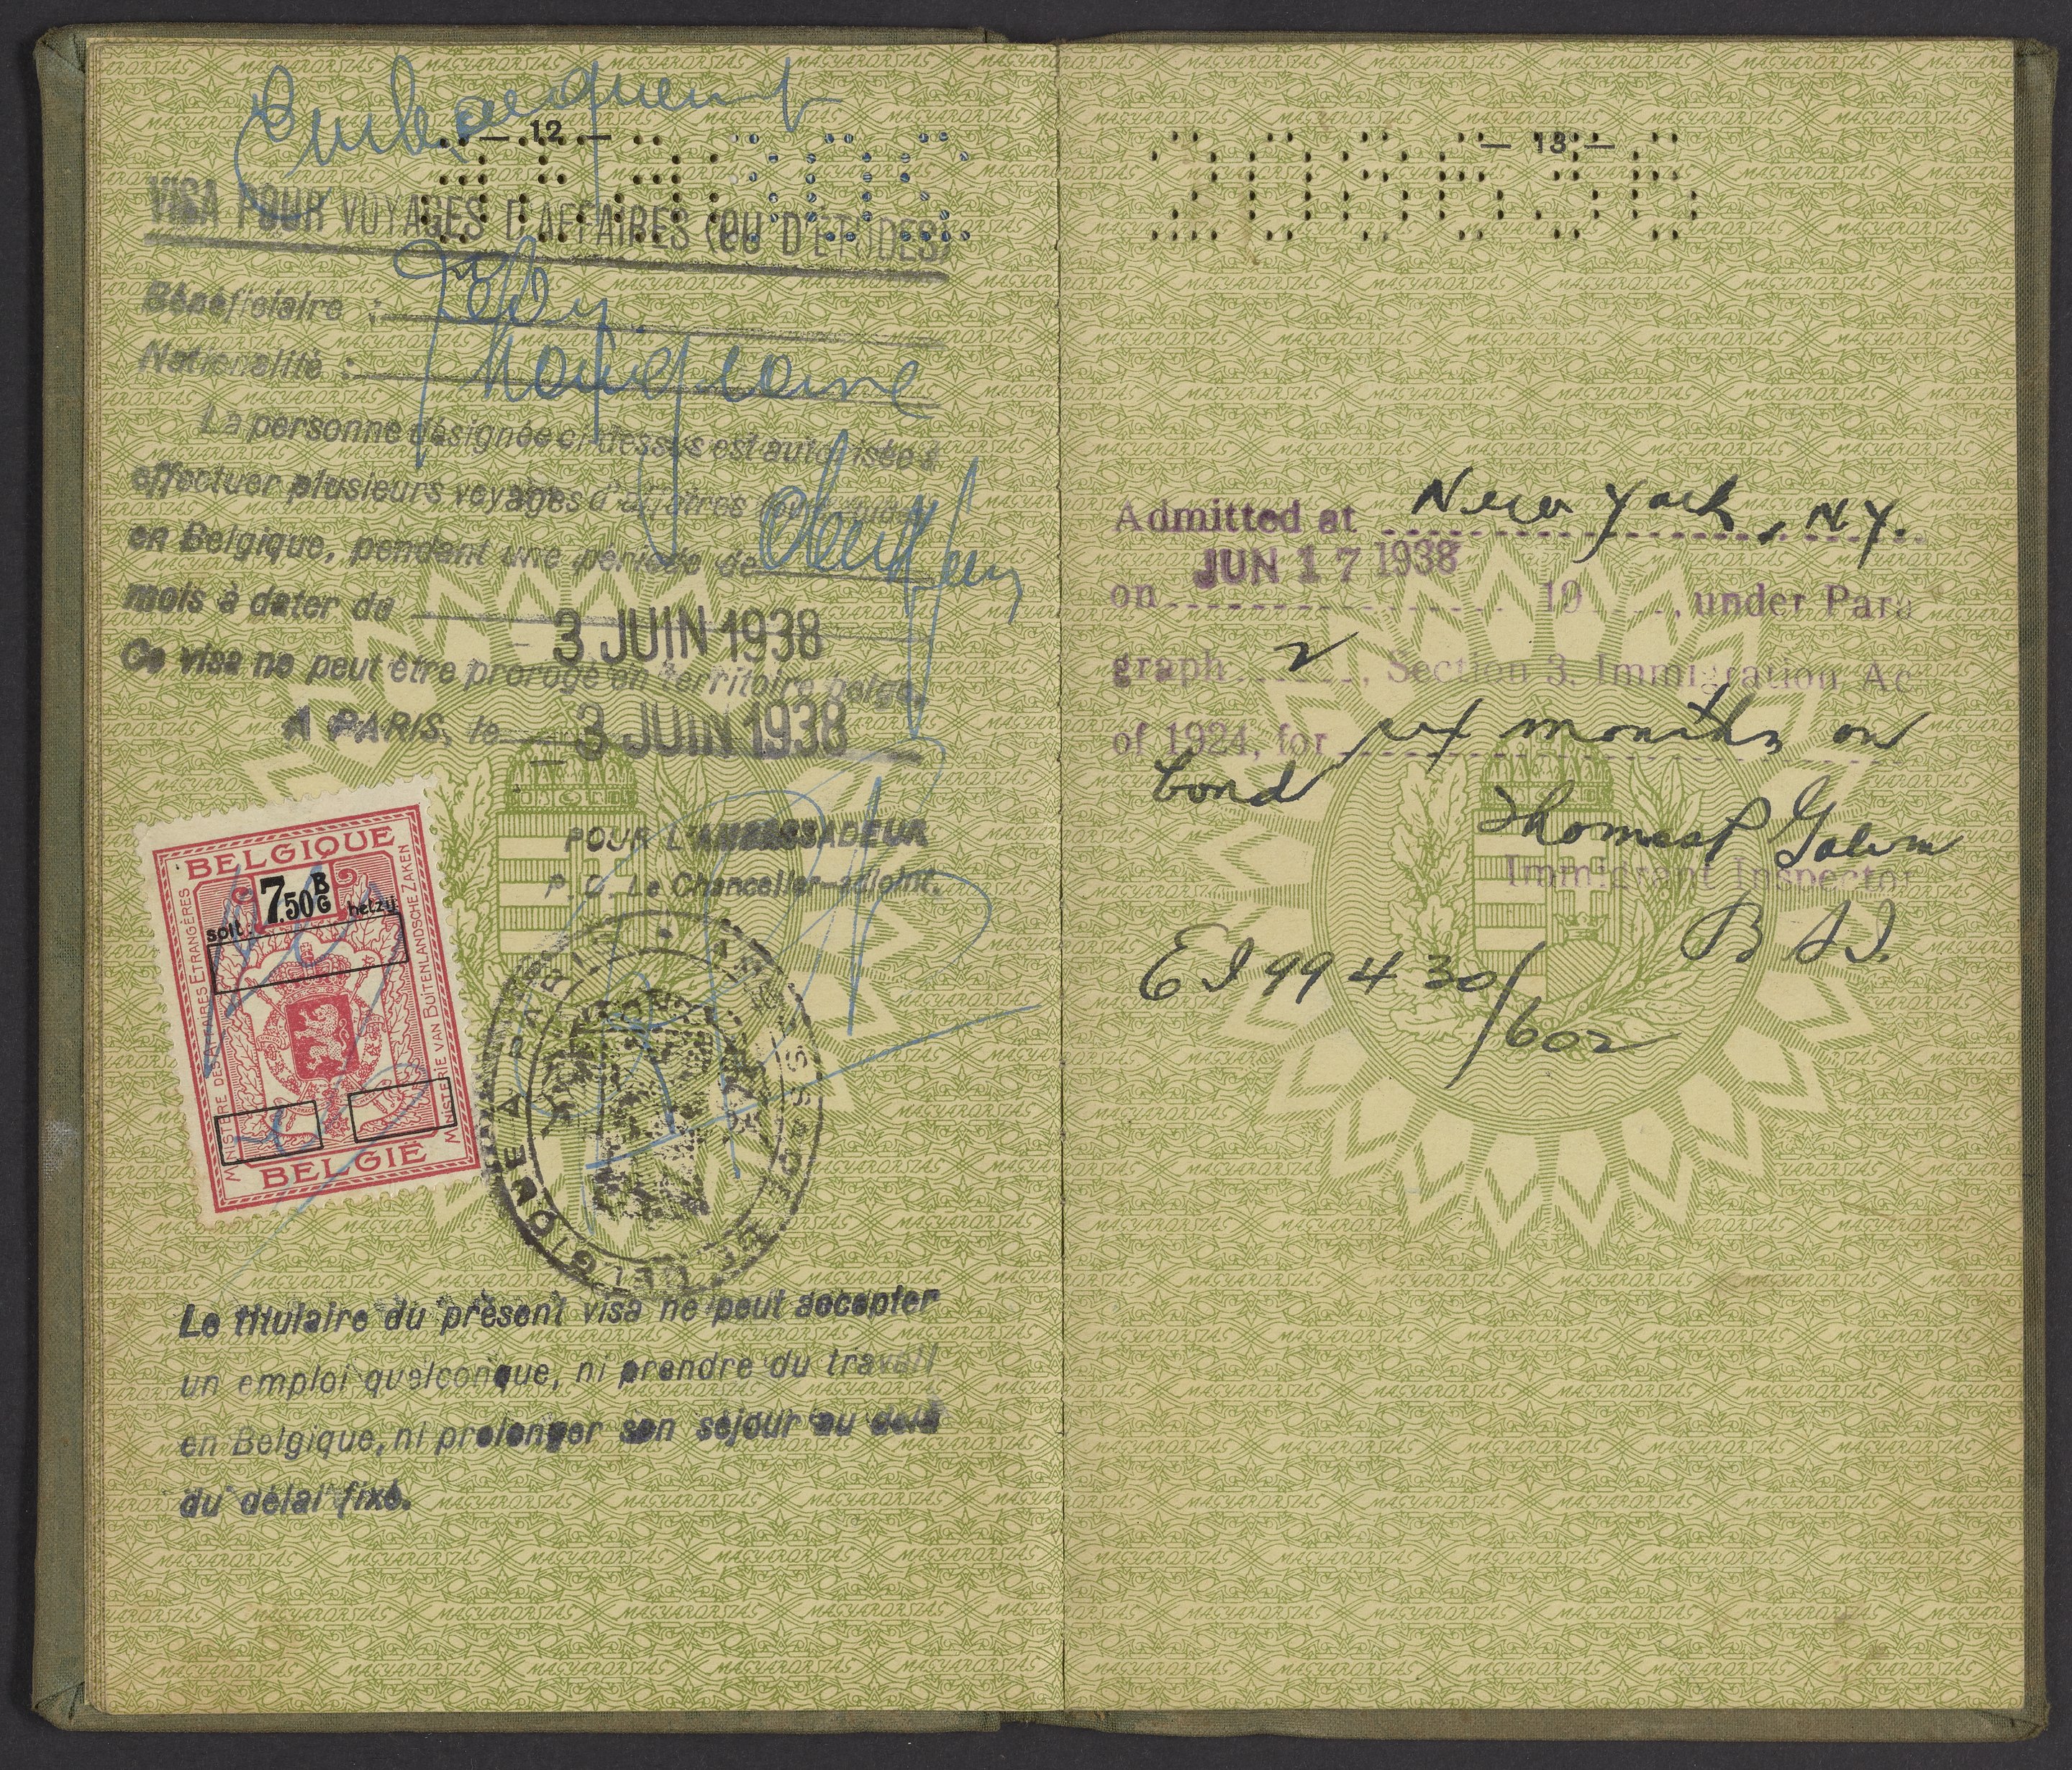 — 12 —
VISA POUR VOYAGES D'AFFAIRES (OU D'ETUDES)
Bénéficiaire :
Nationalité : Hongroise
La personne désignée ci-dessus est autorisée à
effectuer plusieurs voyages d'affaires
en Belgique, pendant une période de
mois à dater du - 3 JUIN 1938
Ce visa ne peut être prorogé en territoire belge.
A PARIS, le - 3 JUIN 1938
POUR L'AMBASSADEUR
P. O. Le Chancelier-adjoint.
BELGIQUE
7.50 B G
soit: hetzij:
MINISTÈRE DES AFFAIRES ETRANGÈRES
MINISTERIE VAN BUITENLANDSCHE ZAKEN
BELGIË
AMBASSADE DE BELGIQUE A PARIS
Le titulaire du présent visa ne peut accepter
un emploi quelconque, ni prendre du travail
en Belgique, ni prolonger son séjour au delà
du délai fixé.
— 13 —
206636
Admitted at New York, N.Y.
on JUN 17 1938 19 , under Para
graph 2, Section 3, Immigration Ac
of 1924, for six months on
bond
Thomas
Immigrant Inspector
B S I.
EI 99430/602
MAGYARORSZÁG